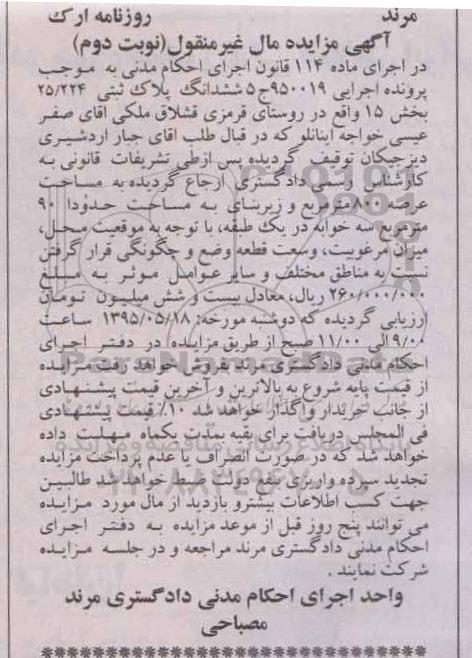 مرند روزنامه ارک
آگهی مزایده مال غیرمنقول(نوبت دوم)
در اجرای ماده ۱۱۴ قانون اجرای احکام مدنی به موجب
پرونده اجرایی ۹۵۰۰۱۹ج۵ ششدانگ پلاک ثبتی ۲۵/۲۲۴
بخش ۱۵ واقع در روستای قرمزی قشلاق ملکی آقای صفر
عیسی خواجه اینانلو که در قبال طلب اقای جبار اردشیری
دیزجیکان توقیف گردیده پس ازطی تشریفات قانونی به
کارشناس رسمی دادگستری ارجاع گردیده به مساحت
عرصه ۸۰۰مترمربع و زیربنای به مساحت حدودا ۹۰
مترمربع سه خوابه در یک طبقه، با توجه به موقعیت محل،
میزان مرغوبیت، وسعت قطعه وضع و چگونگی قرار گرفتن
نسبت به مناطق مختلف و سایر عوامل موثر به مبلغ
۲۶۰/۰۰۰/۰۰۰ ریال، معادل بیست و شش میلیون تومان
ارزیابی گردیده که دوشنبه مورخه: ۱۳۹۵/۰۵/۱۸ ساعت
۹/۰۰الی ۱۱/۰۰ صبح از طریق مزایده در دفتر اجرای
احکام مدنی دادگستری مرند بفروش خواهد رفت مزایده
از قیمت پایه شروع به بالاترین و آخرین قیمت پیشنهادی
از جانب خریدار واگذار خواهد شد ۱۰٪ قیمت پیشنهادی
فی المجلس دریافت برای بقیه بمدت یکماه مهلت داده
خواهد شد که در صورت انصراف یا عدم پرداخت مزایده
تجدید سپرده واریزی بنفع دولت ضبط خواهد شد طالبین
جهت کسب اطلاعات بیشترو بازدید از مال مورد مزایده
می توانند پنج روز قبل از موعد مزایده به دفتر اجرای
احکام مدنی دادگستری مرند مراجعه و در جلسه مزایده
شرکت نمایند .
واحد اجرای احکام مدنی دادگستری مرند
مصباحی